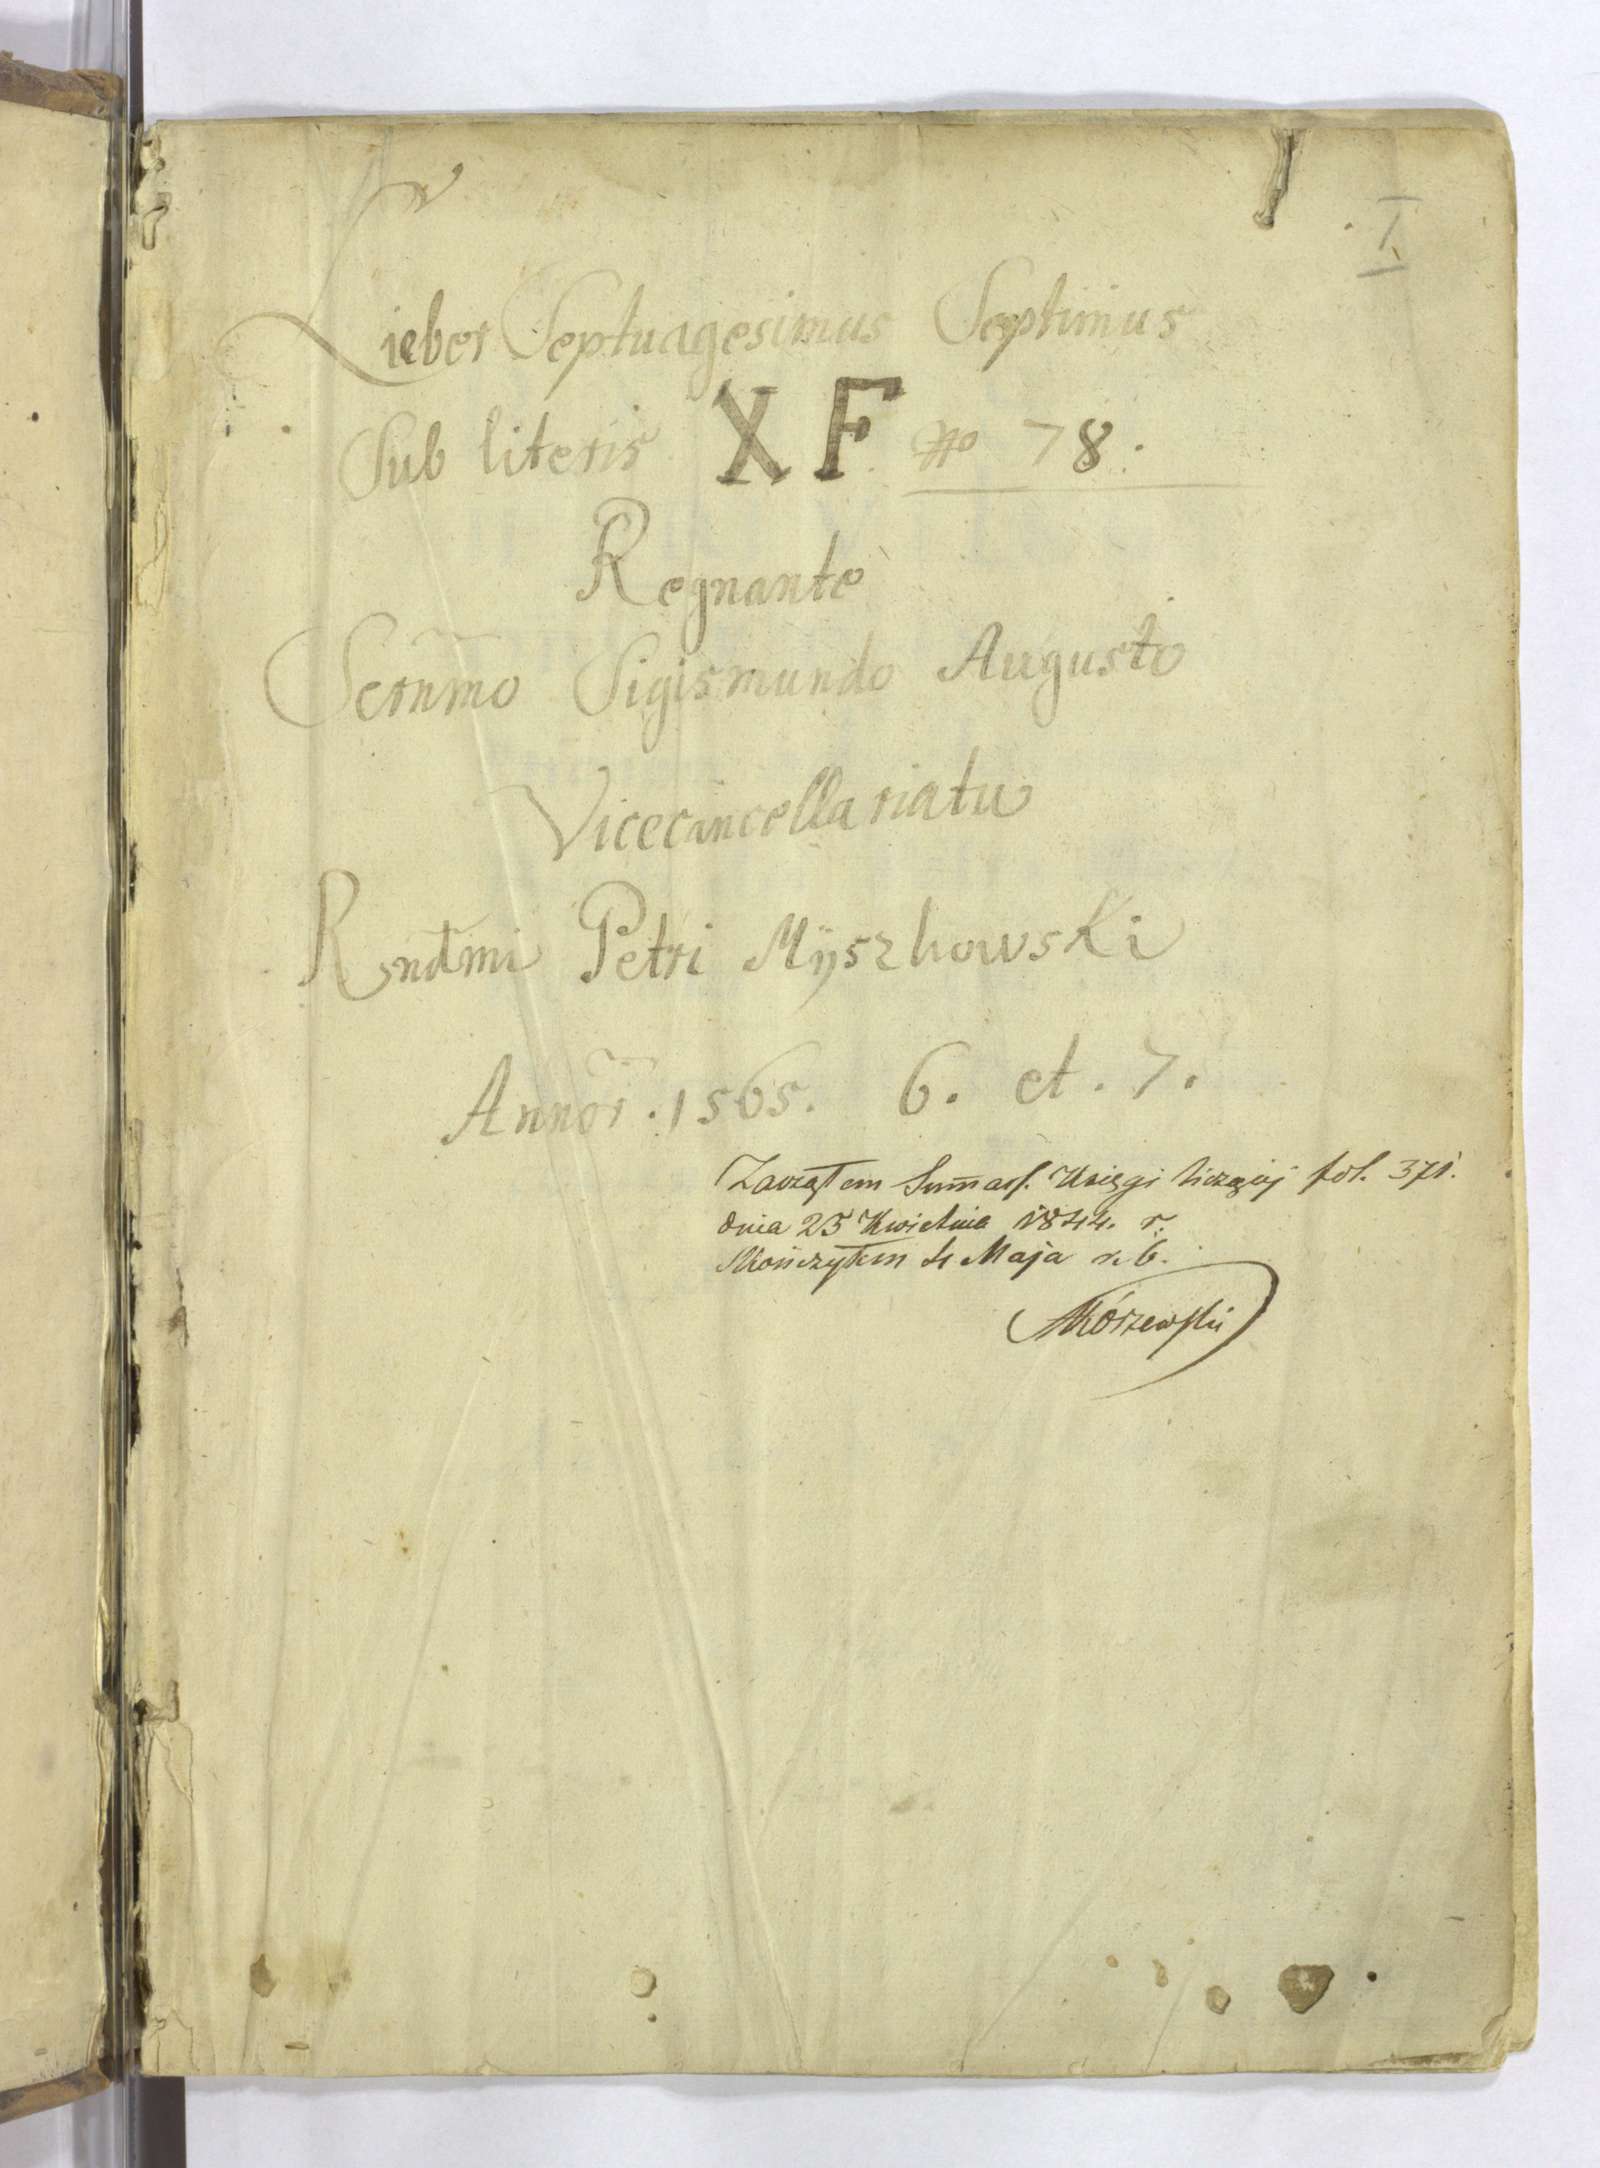 I
Lieber Septuagesimus Septimus
Sub literis X F No 78.
Regnante
Serñmo Sigismundo Augusto
Vicecancellariatu
Rndmi Petri Myszkowski
Annor. 1565. 6. et. 7.
Zacząłem Księgi liczącéj fol. 371.
dnia 25 Kwietnia 1844. r.
Skończyłem 4 Maja r. b.